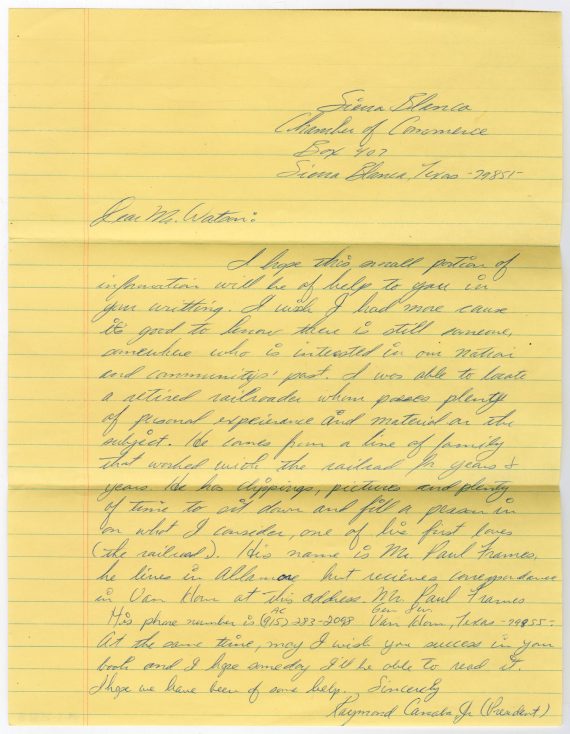 Sierra Blanca
Chamber of Commerce
Box 407
Sierra Blanca, Texas - 79851
Dear Mr. Watson:
I hope this small portion of
information will be of help to you in
your writting. I wish I had more cause
it's good to know there is still someone,
somewhere who is interested in our nation
and communitys' past. I was able to locate
a retired railroader whom posses plenty
of personal expeirance and material on the
subject. He comes from a line of family
that worked with the railroad for years &
years. He has clippings, pictures and plenty
of time to sit down and fill a person in
on what I consider, one of his first loves
(the railroad). His name is Mr. Paul Frames,
he lives in Allamore but recieves correspondance
in Van Horn at this address. Mr. Paul Frames
Gen. Del.
His phone number is AC (915) 283-2098 Van Horn, Texas - 79855 -
At the same time, may I wish you success in your
book and I hope someday I'll be able to read it.
I hope we have been of some help. Sincerely
Raymond Jr. (President)